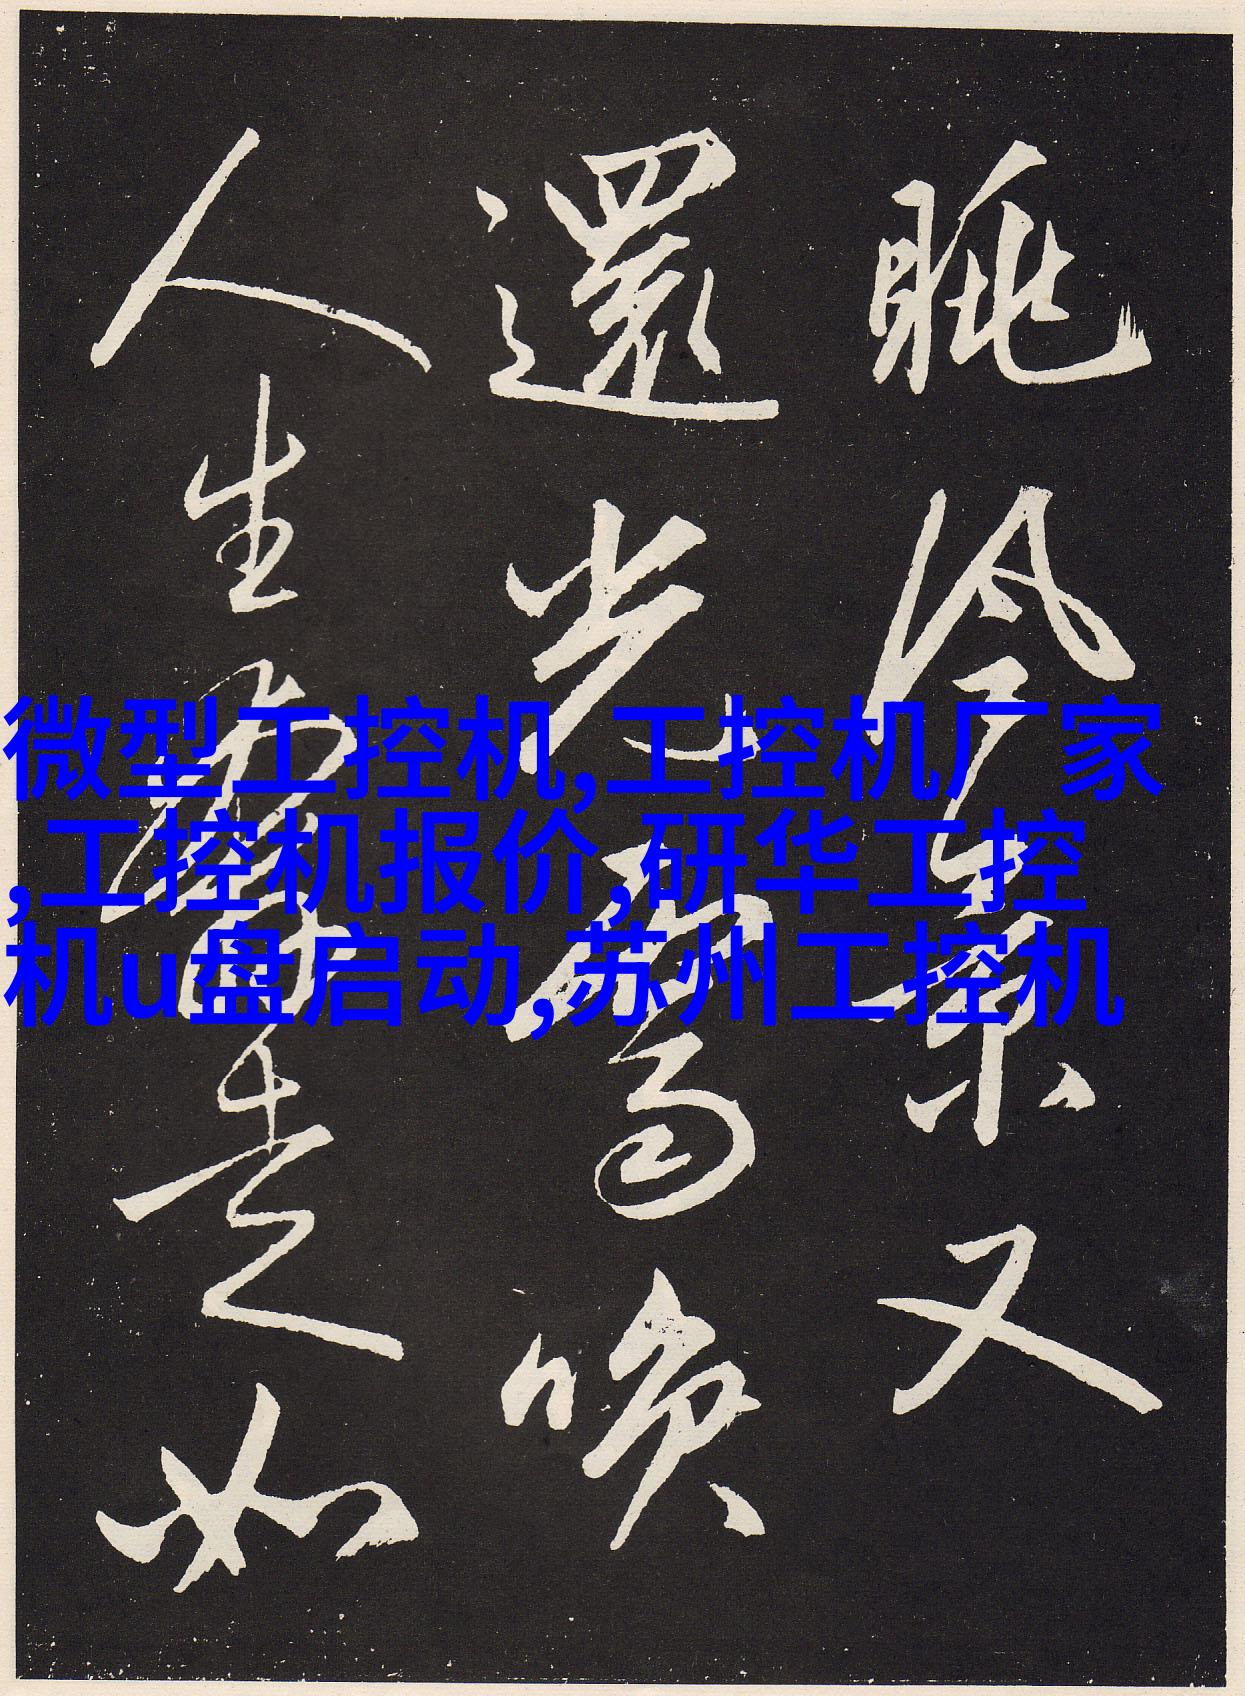 眺又
還光喚
人生如
微型工控机,工控机厂家
,工控机报价,研华工控
机u盘启动,苏州工控机